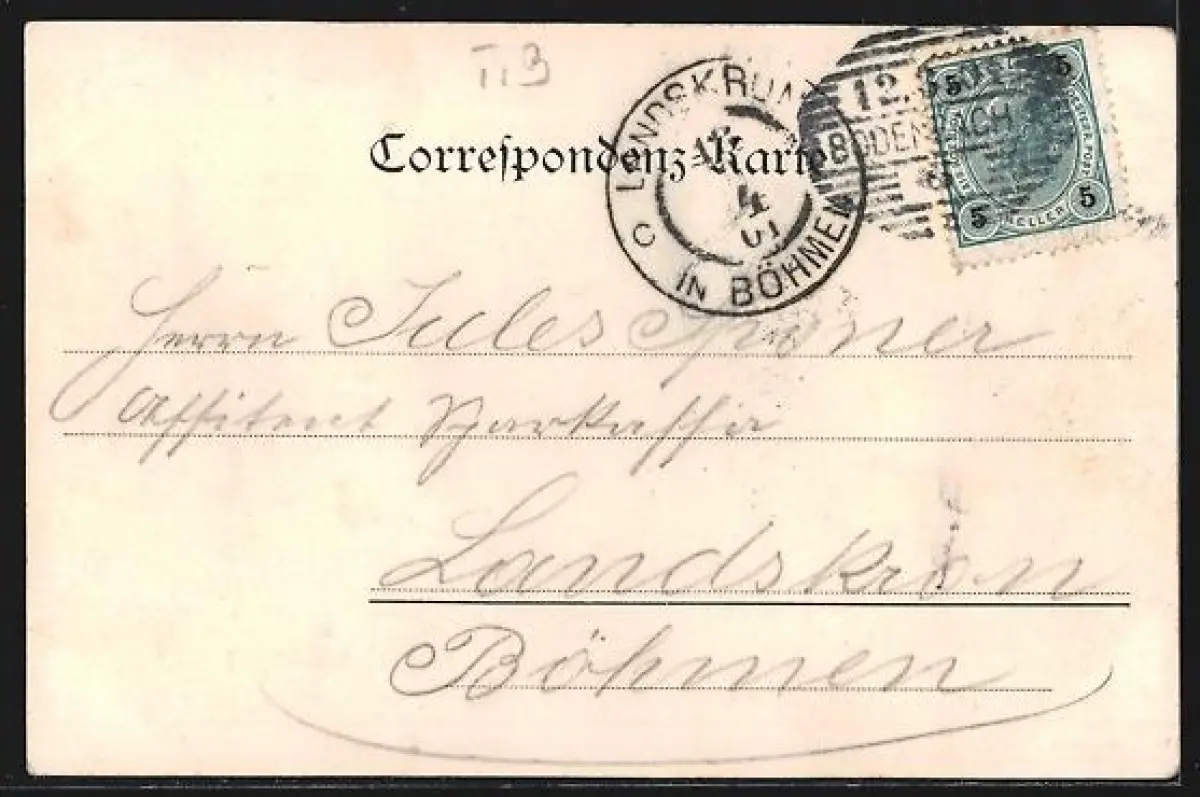 TiB
LANDSKRON
IN BÖHMEN
C
4
01
12.
BODENBACH
5 5
5 HELLER 5
Correſpondenz-Karte
Herrn Jules
Aſſiſtent Sparkaſſa
Landskron
Böhmen